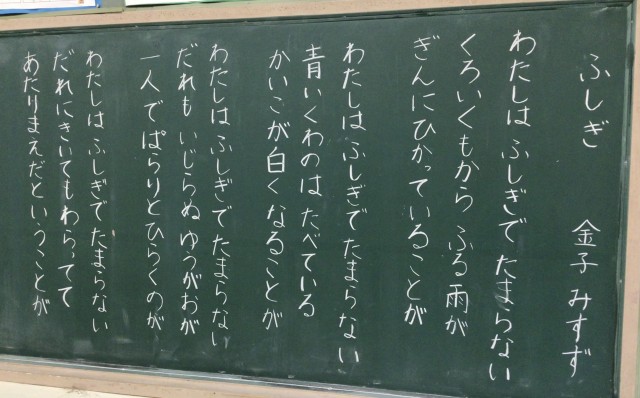 ふしぎ 金子みすず
わたしは ふしぎで たまらない
くろいくもから ふる雨が
ぎんにひかっていることが
わたしは ふしぎで たまらない
青いくわのは たべている
かいこが白くなることが
わたしは ふしぎで たまらない
だれも いじらぬ ゆうがおが
一人でぱらりとひらくのが
わたしは ふしぎで たまらない
だれにきいてもわらってて
あたりまえだということが